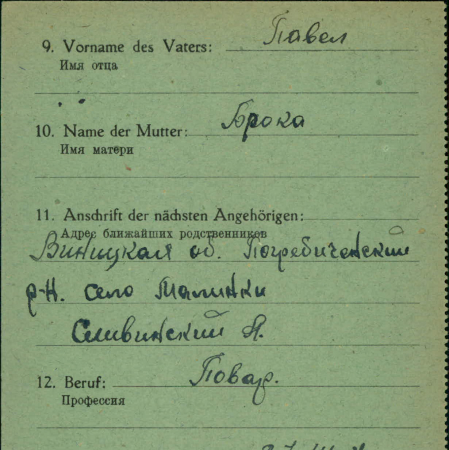 9. Vorname des Vaters: Павел
Имя отца
10. Name der Mutter: Брока
Имя матери
11. Anschrift der nächsten Angehörigen:
Адрес ближайших родственников
Виницкая об. Погребиченский
р-н. село Малинки
Сливинский П.
12. Beruf: Повар.
Профессия